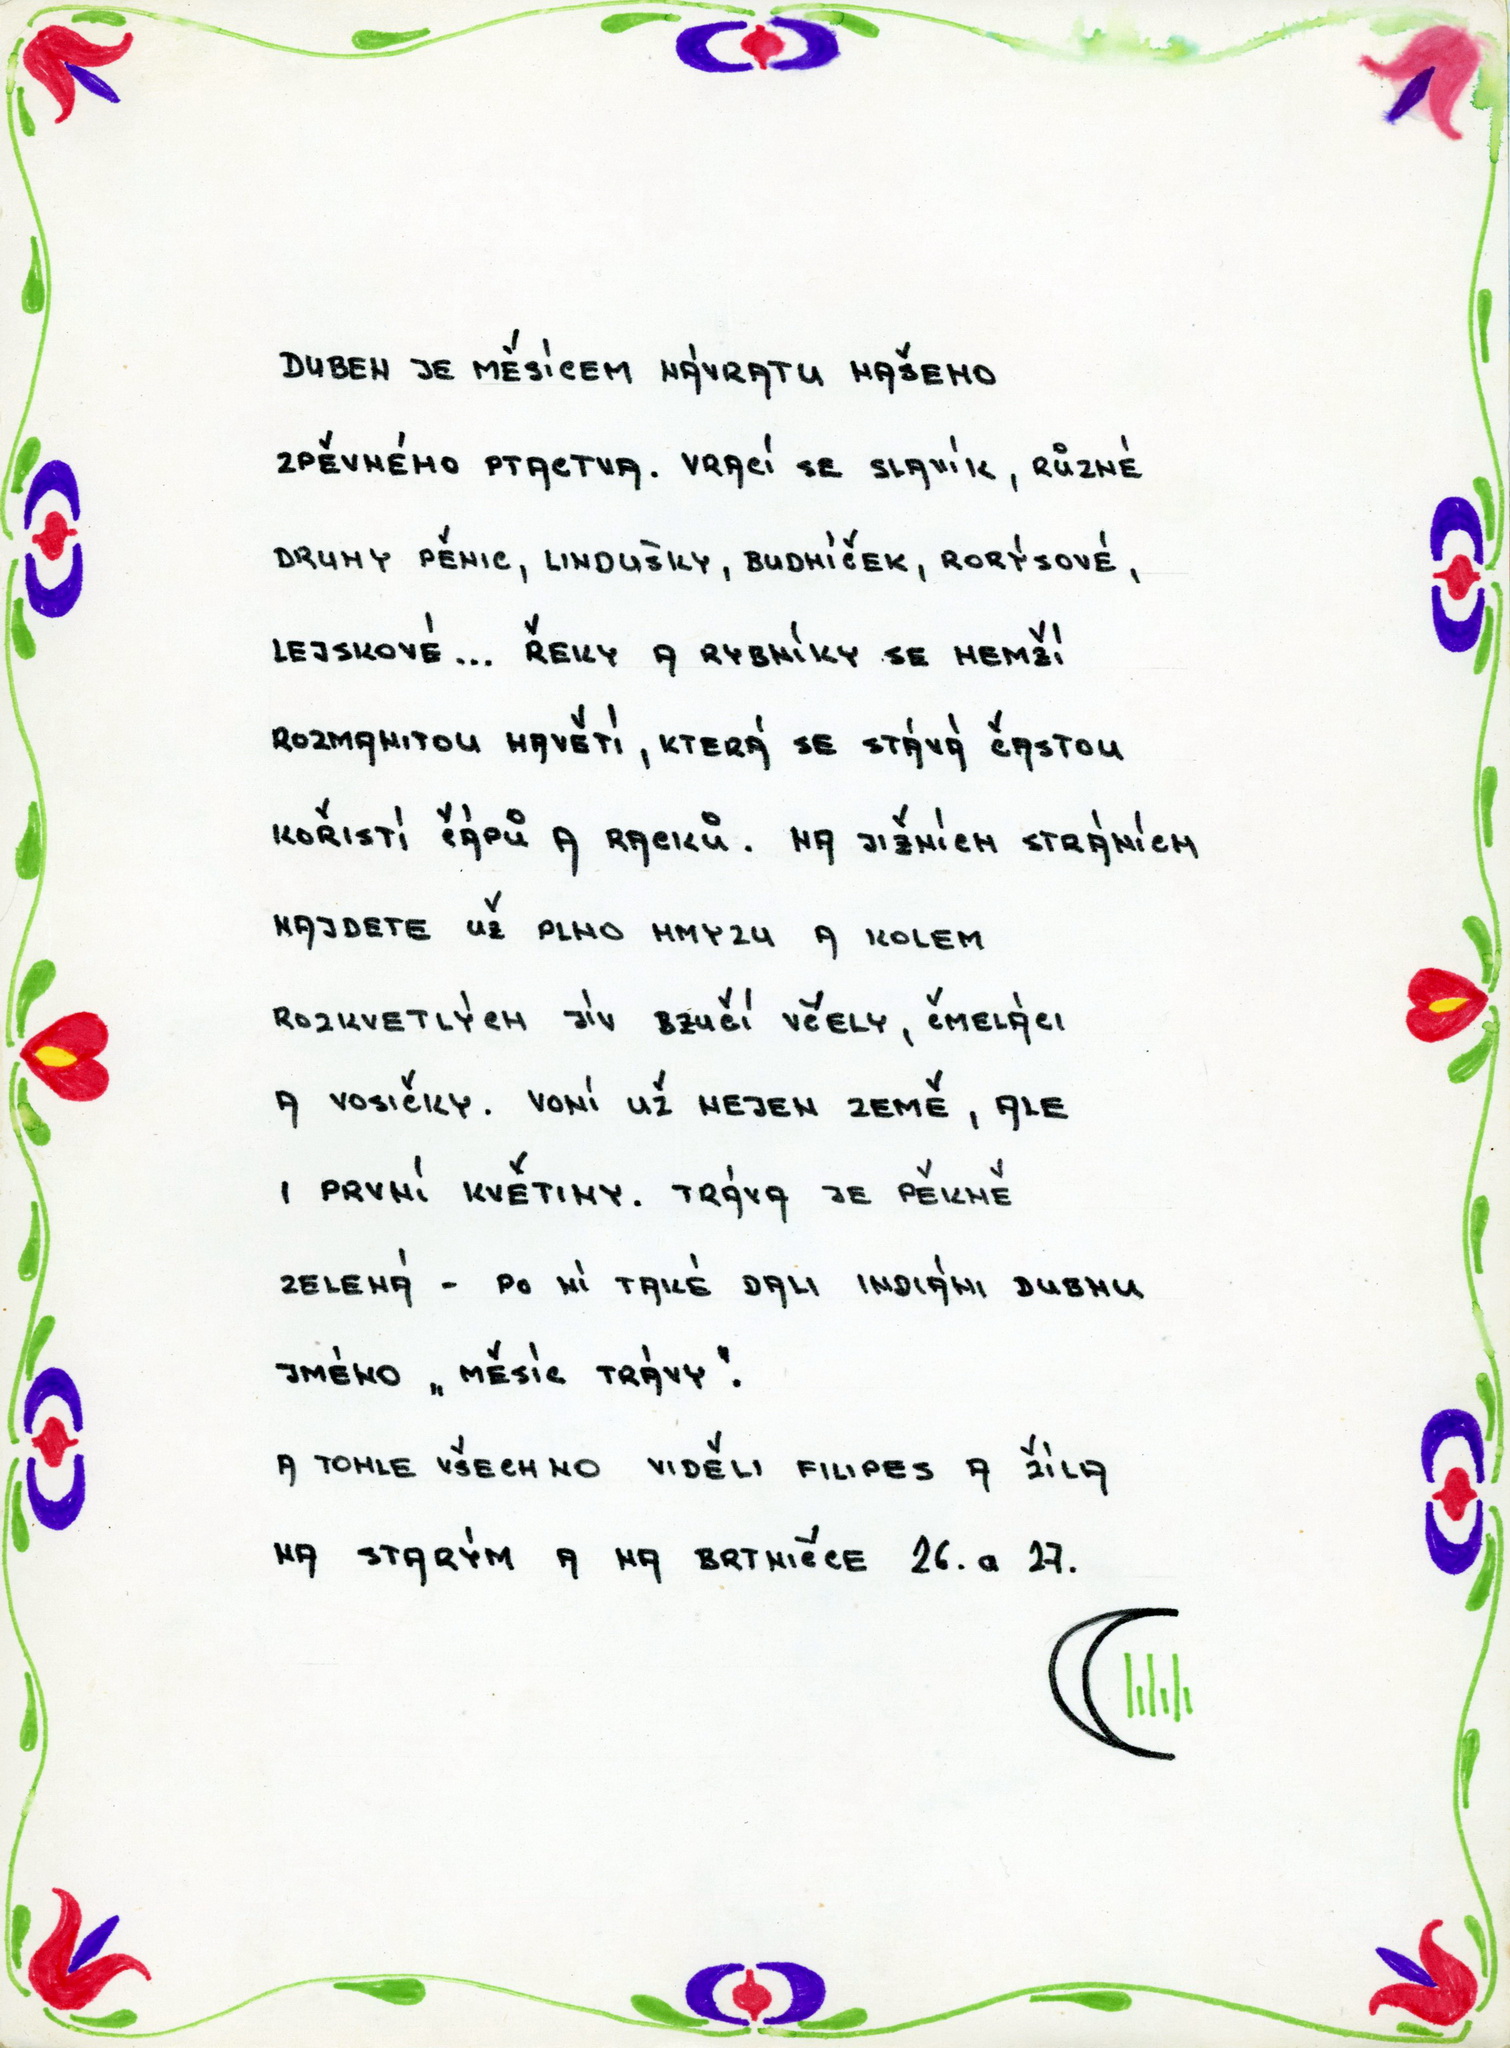 DUBEN JE MĚSÍCEM NÁVRATU NAŠEHO
ZPĚVNÉHO PTACTVA. VRACÍ SE SLAVÍK, RŮZNÉ
DRUHY PĚNIC, LINDUŠKY, BUDNÍČEK, RORÝSOVÉ,
LEJSKOVÉ... ŘEKY A RYBNÍKY SE HEMŽÍ
ROZMANITOU HAVĚTÍ, KTERÁ SE STÁVÁ ČASTOU
KOŘISTÍ ČÁPŮ A RACKŮ. NA JIŽNÍCH STRÁNÍCH
NAJDETE UŽ PLNO HMYZU A KOLEM
ROZKVETLÝCH JÍV BZUČÍ VČELY, ČMELÁCI
A VOSIČKY. VONÍ UŽ NEJEN ZEMĚ, ALE
I PRVNÍ KVĚTINY. TRÁVA JE PĚKNĚ
ZELENÁ - PO NÍ TAKÉ DALI INDIÁNI DUBNU
JMÉNO „MĚSÍC TRÁVY".
A TOHLE VŠECHNO VIDĚLI FILIPES A ŽÍLA
NA STARÝM A NA BRTNIČCE 26. a 27.